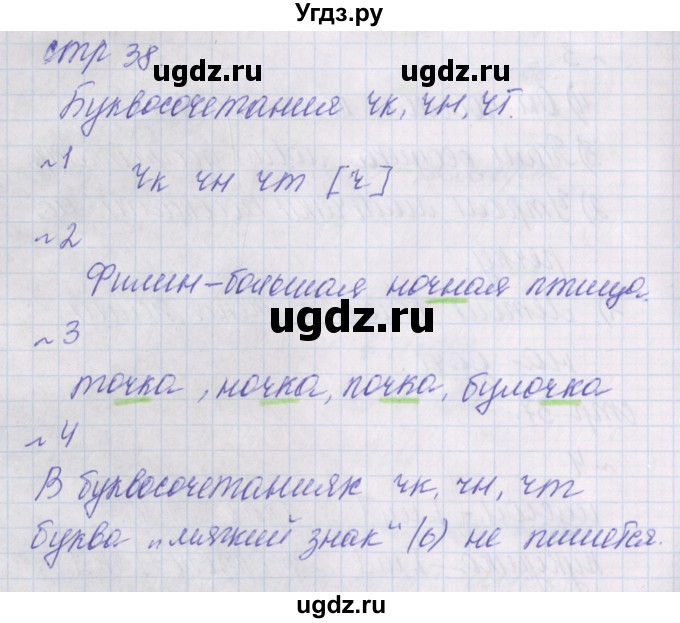 Угдз.ру
стр 38
ugdz.ru ugdz.ru
Буквосочетания чк, чн, чт.
~1
чк чн чт [ч]
~2
Филин - большая ночная птица.
ugdz.ru ugdz.ru
~3
точка, ночка, почка, булочка
~4
В буквосочетаниях чк, чн, чт
буква „мягкий знак" (ь) не пишется.
ugdz.ru ugdz.ru
ugdz.ru